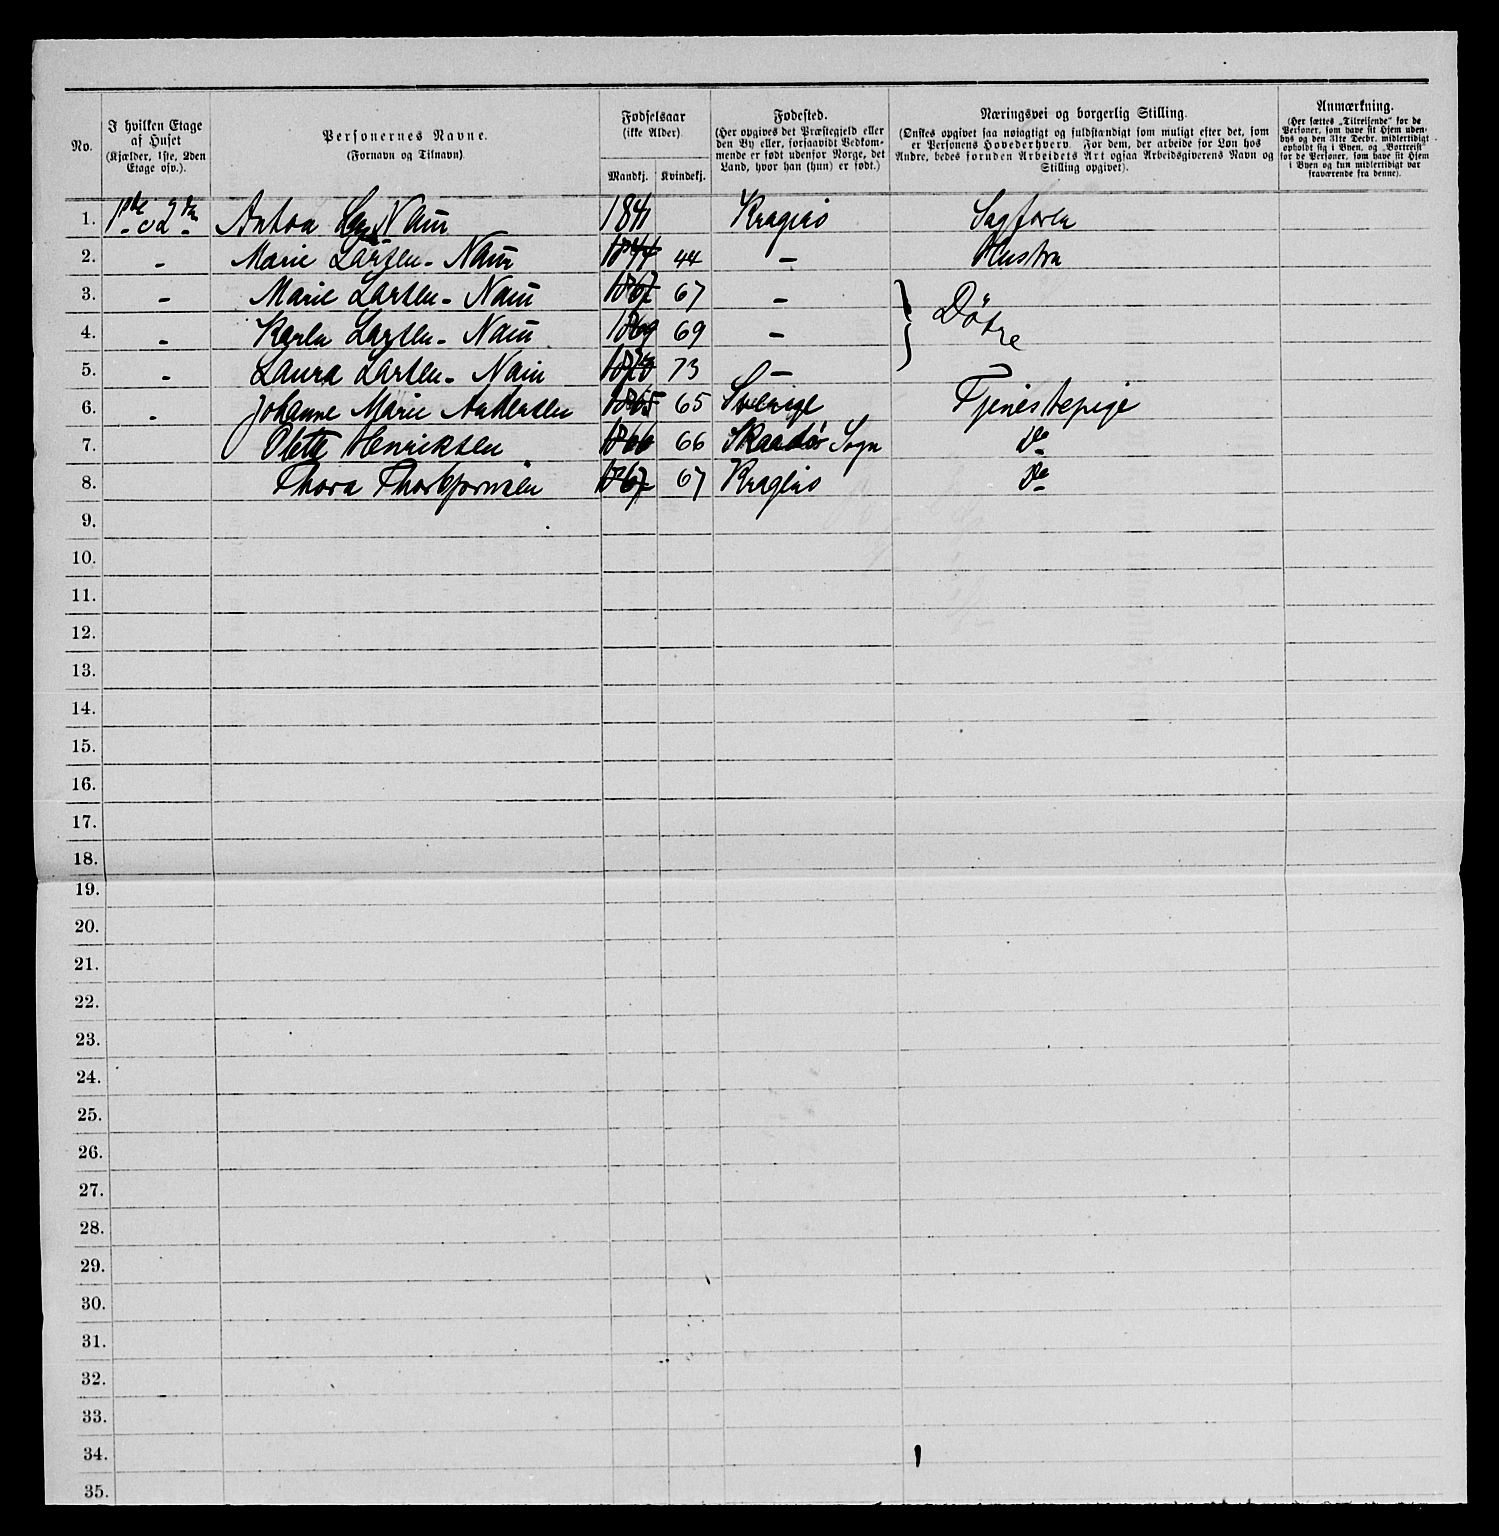 No.
I hvilken Etage af Huset
(Kjælder, 1ste, 2den Etage osv.).
Personernes Navne.
(Fornavn og Tilnavn)
Fødselsaar
(ikke Alder)
Mandkj. Kvindekj.
Fødested.
(Her opgives det Præstegjeld eller
den By eller, forsaavidt Vedkom-
mende er født udenfor Norge, det
Land, hvor han (hun) er født.)
Næringsvei og borgerlig Stilling.
(Ønskes opgivet saa nøiagtigt og fuldstændigt som muligt efter det, som
er Personens Hovederhverv. For dem, der arbeide for Løn hos
Andre, bedes foruden Arbeidets Art ogsaa Arbeidsgiverens Navn og
Stilling opgivet).
Anmærkning.
(Her sættes „Tilreisende“ for de
Personer, som have sit Hjem uden-
bys og den 31te Decbr. midlertidigt
opholdt sig i Byen, og „Bortreist“
for de Personer, som have sit Hjem
i Byen og kun midlertidigt var
fraværende fra denne).
1. 1ste o 2den Anton Nain 1841 Kragerø Sagfører
2. - Marie Larsen-Nain 1844 44 - Hustru
3. - Marie Larsen-Nain 1867 67 - } Døtre
4. - Karla Larsen-Nain 1869 69 -
5. - Laura Larsen-Nain 73 -
6. - Johanne Marie Andersen 1865 65 Sverige Tjenestepige
7. Henriksen 1866 66 Skaadø Sogn Do
8. Thora Thorbjørnsen 1867 67 Kragerø Do
9.
10.
11.
12.
13.
14.
15.
16.
17.
18.
19.
20.
21.
22.
23.
24.
25.
26.
27.
28.
29.
30.
31.
32.
33.
34.
35.